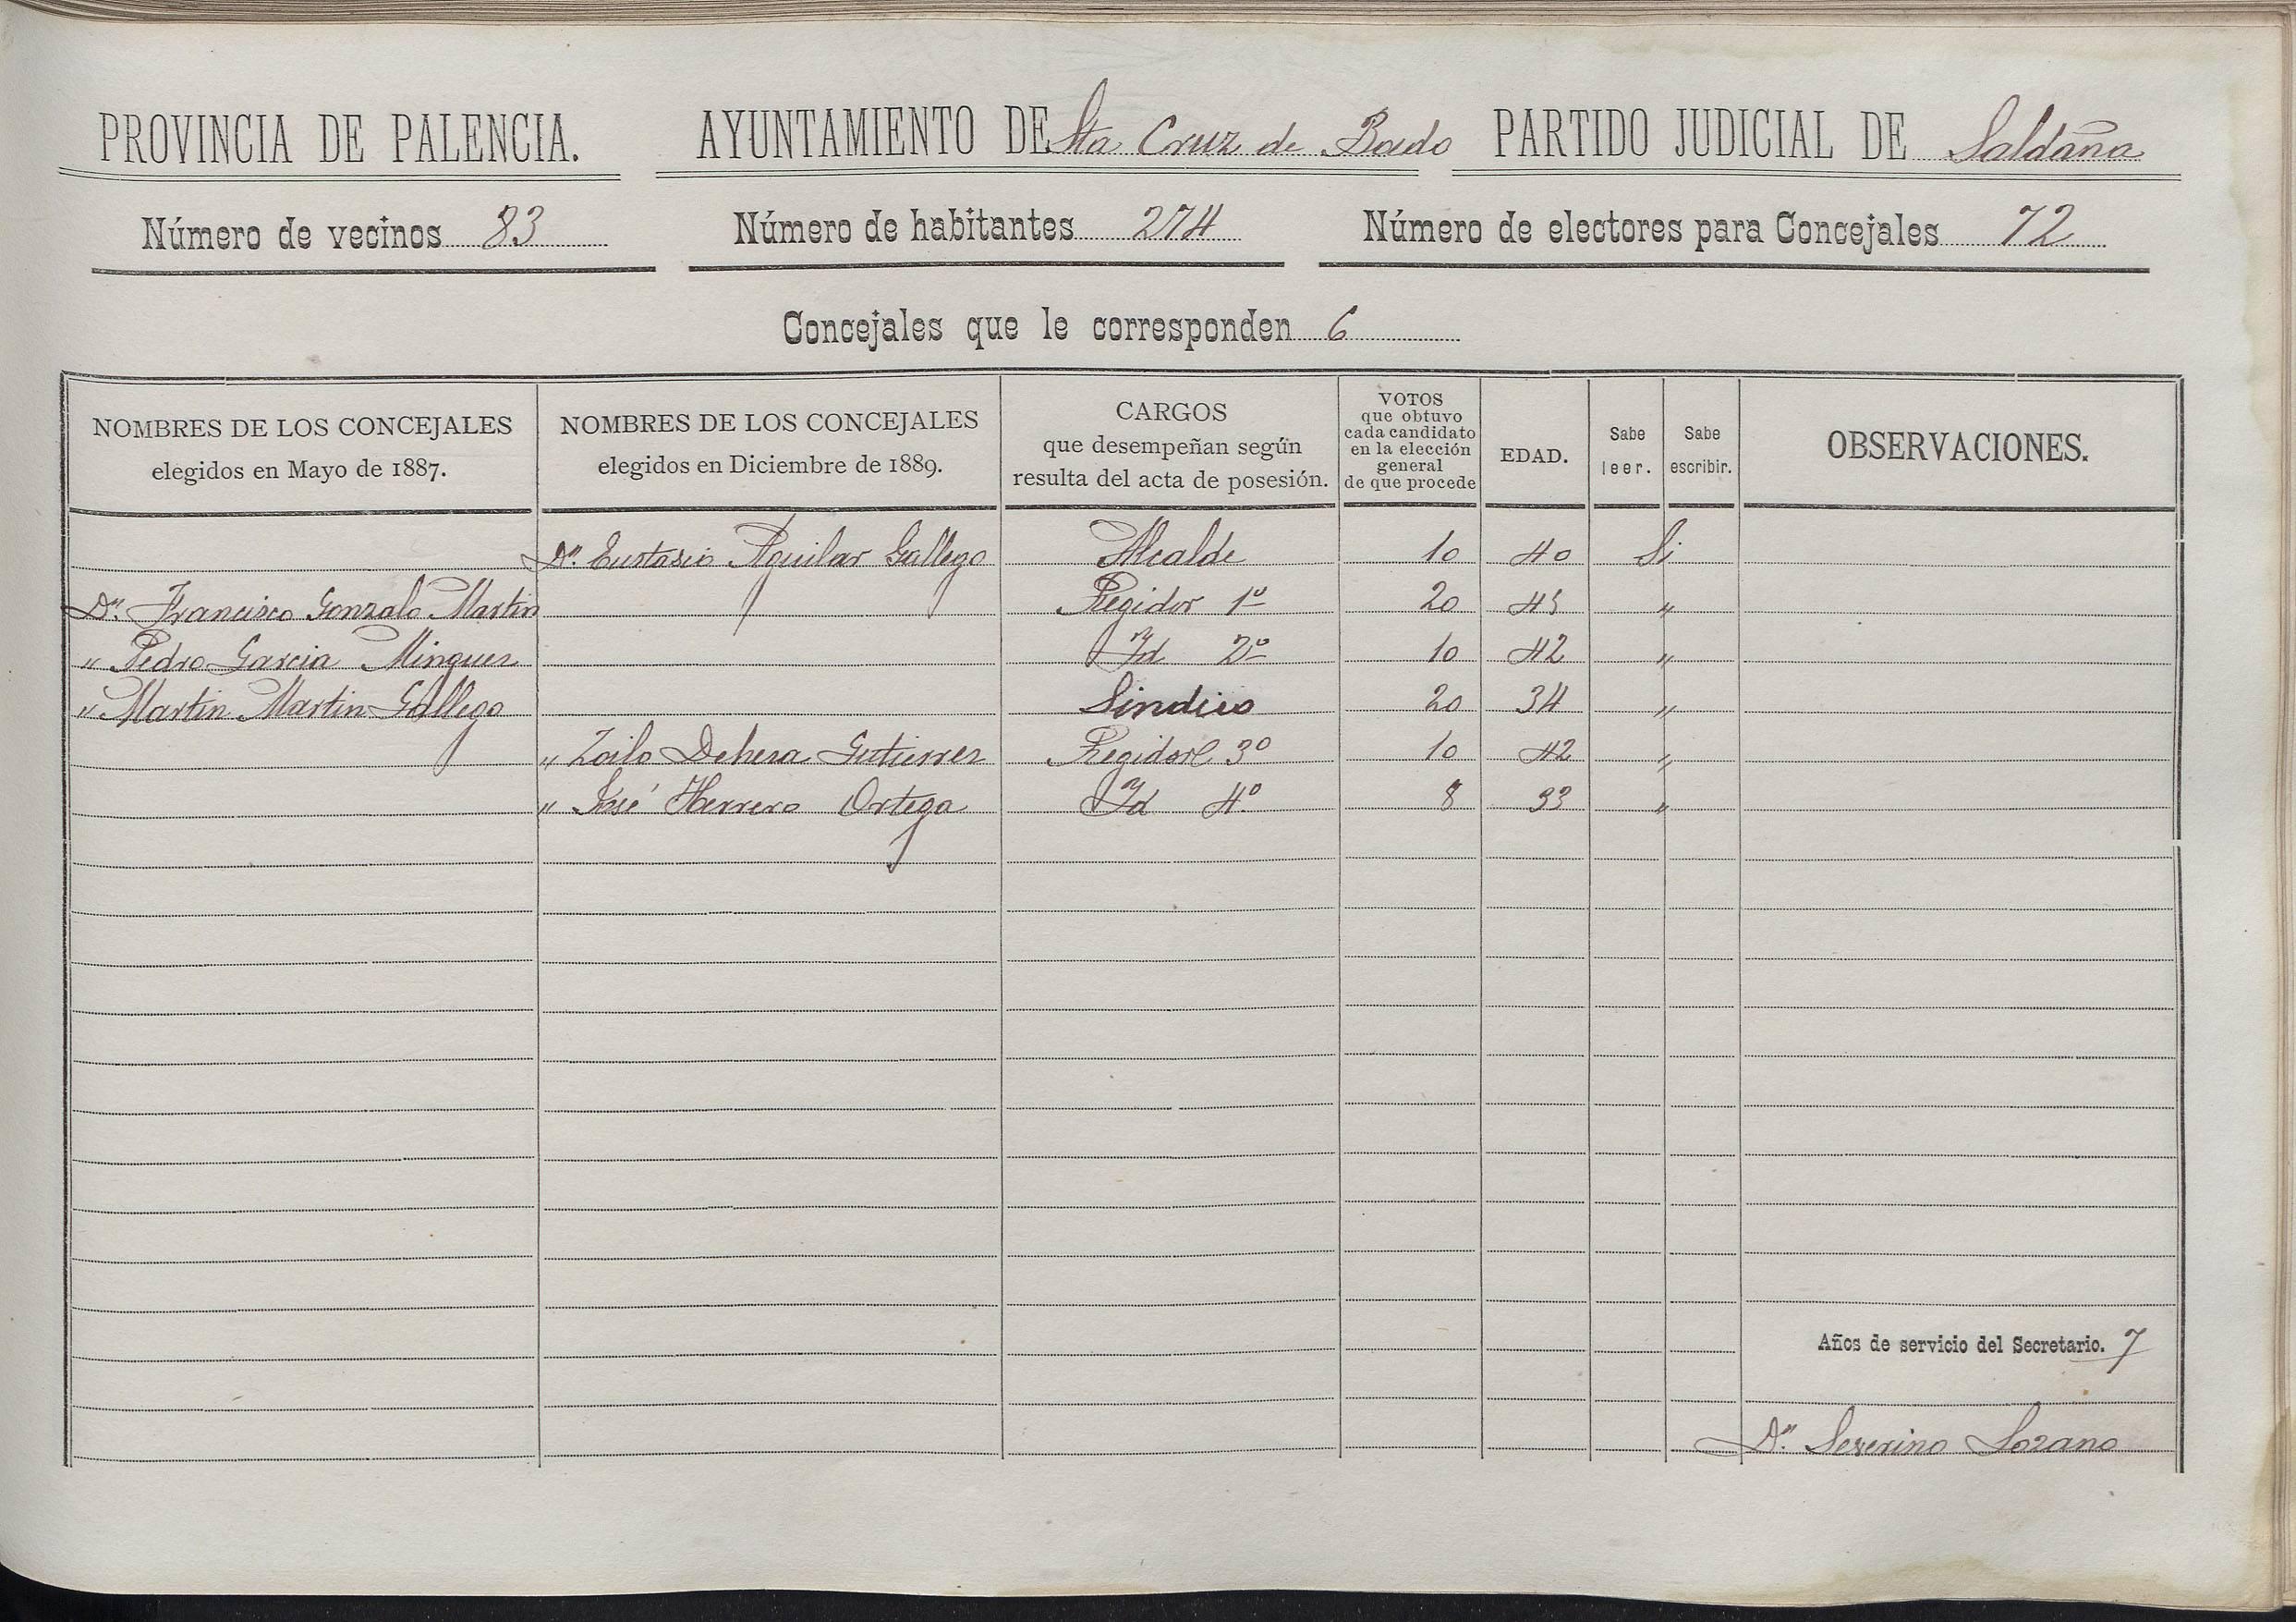 PROVINCIA DE PALENCIA. AYUNTAMIENTO DE Sta Cruz de Bado PARTIDO JUDICIAL DE Saldaña
Número de vecinos 83 Número de habitantes 274 Número de electores para Concejales 72
Concejales que le corresponden 6
NOMBRES DE LOS CONCEJALES elegidos en Mayo de 1887.
NOMBRES DE LOS CONCEJALES elegidos en Diciembre de 1889.
CARGOS que desempeñan según resulta del acta de posesión.
VOTOS que obtuvo cada candidato en la elección general de que procede
EDAD.
Sabe leer.
Sabe escribir.
OBSERVACIONES.
Dn. Eustasio Aguilar Gallego Alcalde 10 40 Si
Dn. Francisco Gonzalo Martin Regidor 1º 20 45 "
" Pedro Garcia Minguez Id 2º 10 42 "
" Martin Martin Gallego Sindico 20 34 "
" Zoilo Dehesa Gutierrez Regidor 3º 10 42 "
" José Herrero Ortega Id 4º 8 33 "
Años de servicio del Secretario. 7
Dn. Severino Lozano